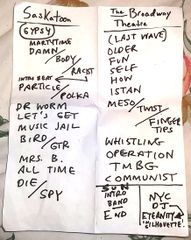 Saskatoon
GYPSY
MARTYTIME
DAMN/
BODY/
RACIST
INTRO BEAT
PARTICLE/
POLKA
DR WORM
LET'S GET
MUSIC JAIL
BIRD/
GTR
MRS. B.
ALL TIME
DIE/
SPY
The Broadway
Theatre
(LAST WAVE)
OLDER
FUN
SELF
HOW
ISTAN
MESO/
TWIST/
FINGER
TIPS
WHISTLING
OPERATION
TMBG
COMMUNIST
SUN
INTRO
BAND
END
NYC
DJ
ETERNITY
"SILHOUETTE"